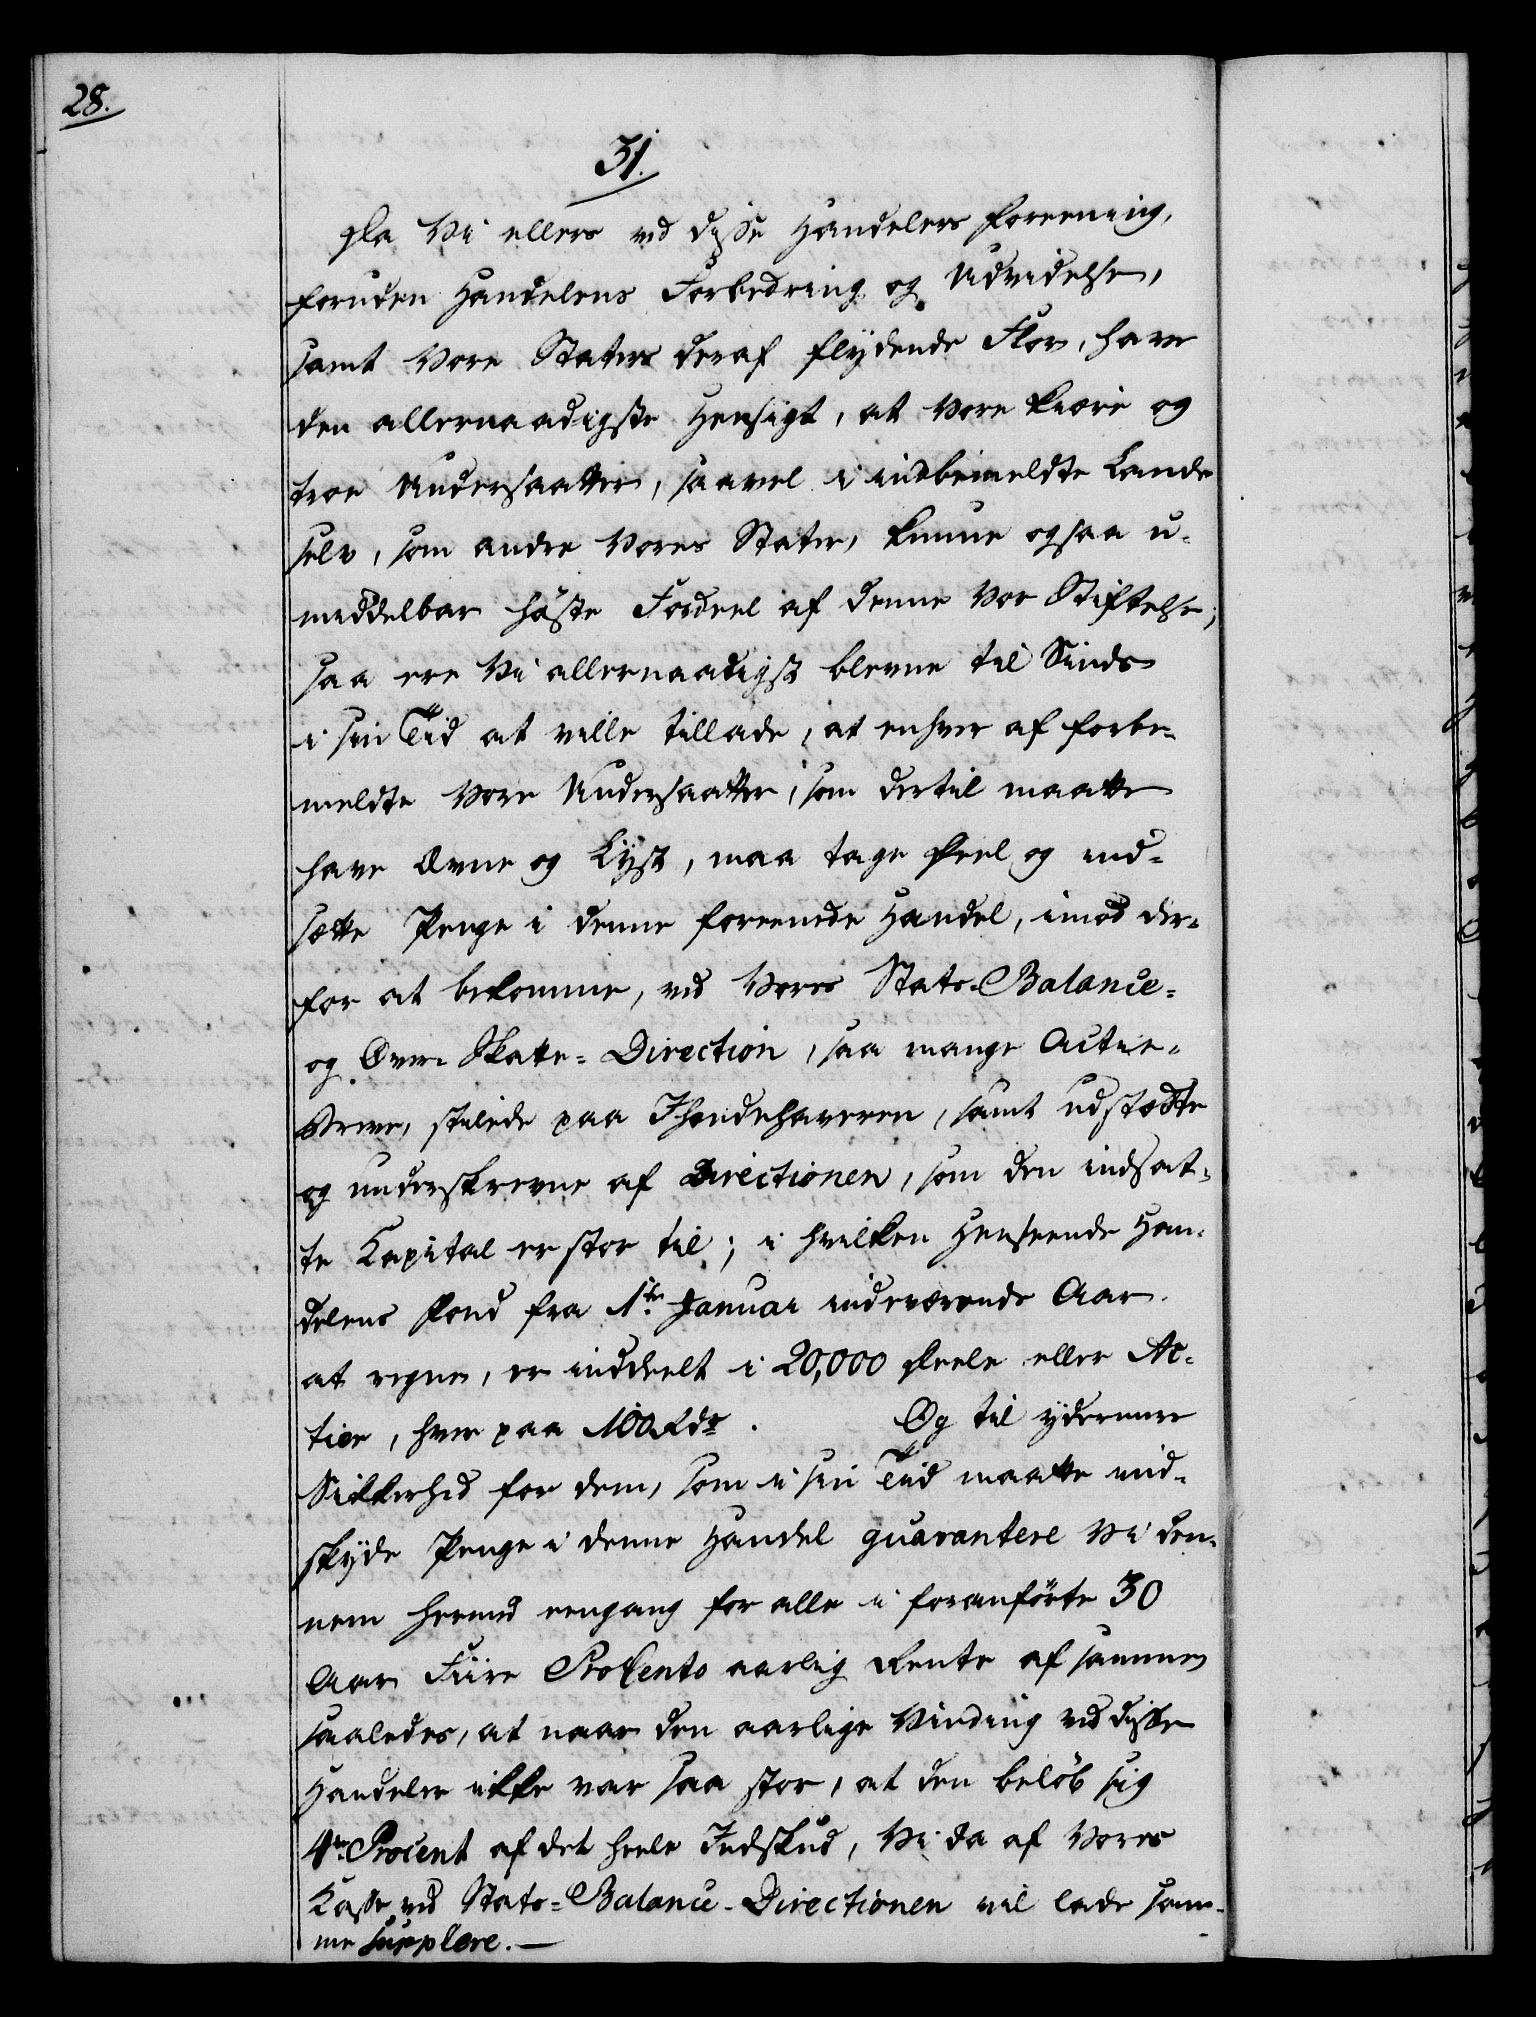 28.
31.
Da Vi ellers ved disse Handelers Foreening,
foruden Handelens Forbedring og Udvidelse,
samt Vore Staters deraf flydende Flor, have
den allernaadigste Hensigt, at Vore kiære og
troe Undersaatter, saavel i indbemeldte Lande
selv, som andre Vores Stater, kunne ogsaa u-
middelbar høste Fordeel af denne Vor Stiftelse;
saa ere Vi allernaadigst blevne til Sinds
i sin Tiid at ville tillade, at enhver af forbe-
meldte Vore Undersaatter, som dertil maatte
have Ævne og Lyst, maa tage Deel og ind-
sætte Penge i denne foreenede Handel, imod der-
for at bekomme, ved Vores Stats-Balance-
og Over-Skatte-Direction, saa mange Actie-
Breve, stilede paa Ihændehaveren, samt udstædte
og underskrevne af Directionen, som den indsat-
te Kapital er stor til; i hvilken Henseende Han-
delens Fond fra 1te Januar indeværende Aar
at regne, er inddeelt i 20,000 Deele eller Ac-
tier, hver paa 100 Rdr. Og til ydermere
Sikkerhed for dem, som i sin Tiid maatte ind-
skyde Penge i denne Handel guarantere Vi den-
nem hermed eengang for alle i foranførte 30
Aar Fiire ProCento aarlig Rente af samme,
saaledes, at naar den aarlige Vinding ved disse
Handeler ikke var saa stor, at den beløb sig
4re Procent af det heele Indskud, Vi da af Vores
Kasse ved Stats-Balance-Directionen vil lade sam-
me supplere.—